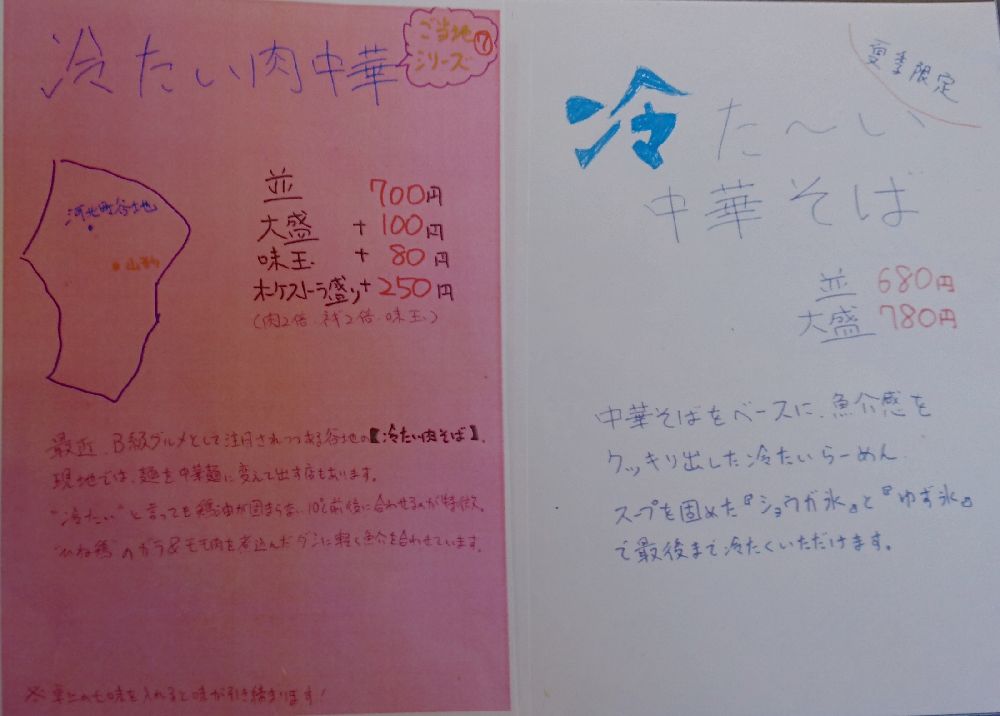 ご当地
シリーズ⑰
冷たい肉中華
河北町谷地
山形
並 700円
大盛 +100円
味玉 +80円
オーケストラ盛り+250円
(肉2倍、ネギ2倍、味玉)
最近、B級グルメとして注目されつつある谷地の【冷たい肉そば】。
現地では、麺を中華麺に変えて出す店もあります。
"冷たい"と言っても鶏油が固まらない10℃前後に合わせるのが特徴。
"ひね鶏"のガラ&モモ肉を煮込んだダシに軽く魚介を合わせています。
※卓上の七味を入れると味が引き締まります!
夏季限定
冷た〜い
中華そば
並 680円
大盛 780円
中華そばをベースに、魚介感を
クッキリ出した冷たいらーめん。
スープを固めた『ショウガ氷』と『ゆず氷』
で最後まで冷たくいただけます。